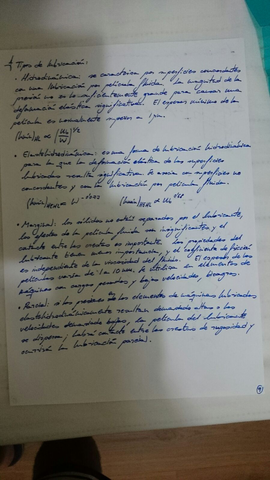 Tipos de lubricación:
• Hidrodinámica: se caracteriza por superficies concordantes
con una lubricación por película fluida. La magnitud de la
presión no es lo suficientemente grande para causar una
deformación elástica significativa. El espesor mínimo de la
película es normalmente superior a 1 μm.
• Elastohidrodinámica: es una forma de lubricación hidrodinámica
para la que la deformación elástica de las superficies
lubricadas resulta significativa. Se asocia con superficies no
concordantes y con la lubricación por película fluida.
• Marginal: los sólidos no están separados por el lubricante,
los efectos de la película fluida son insignificantes y el
contacto entre las crestas es importante. Las propiedades del
lubricante tienen menos importancia y el coeficiente de fricción
es independiente de la viscosidad del fluido. El espesor de las
películas varía de 1 a 10 nm. Se utiliza en elementos de
máquinas con cargas pesadas y bajas velocidades
• Parcial: si las presiones en los elementos de máquinas lubricados
elastohidrodinámicamente resultan demasiado altas o las
velocidades demasiado bajas, la película del lubricante
se dispersa; habrá contacto entre las crestas de rugosidad y
ocurrirá la lubricación parcial.